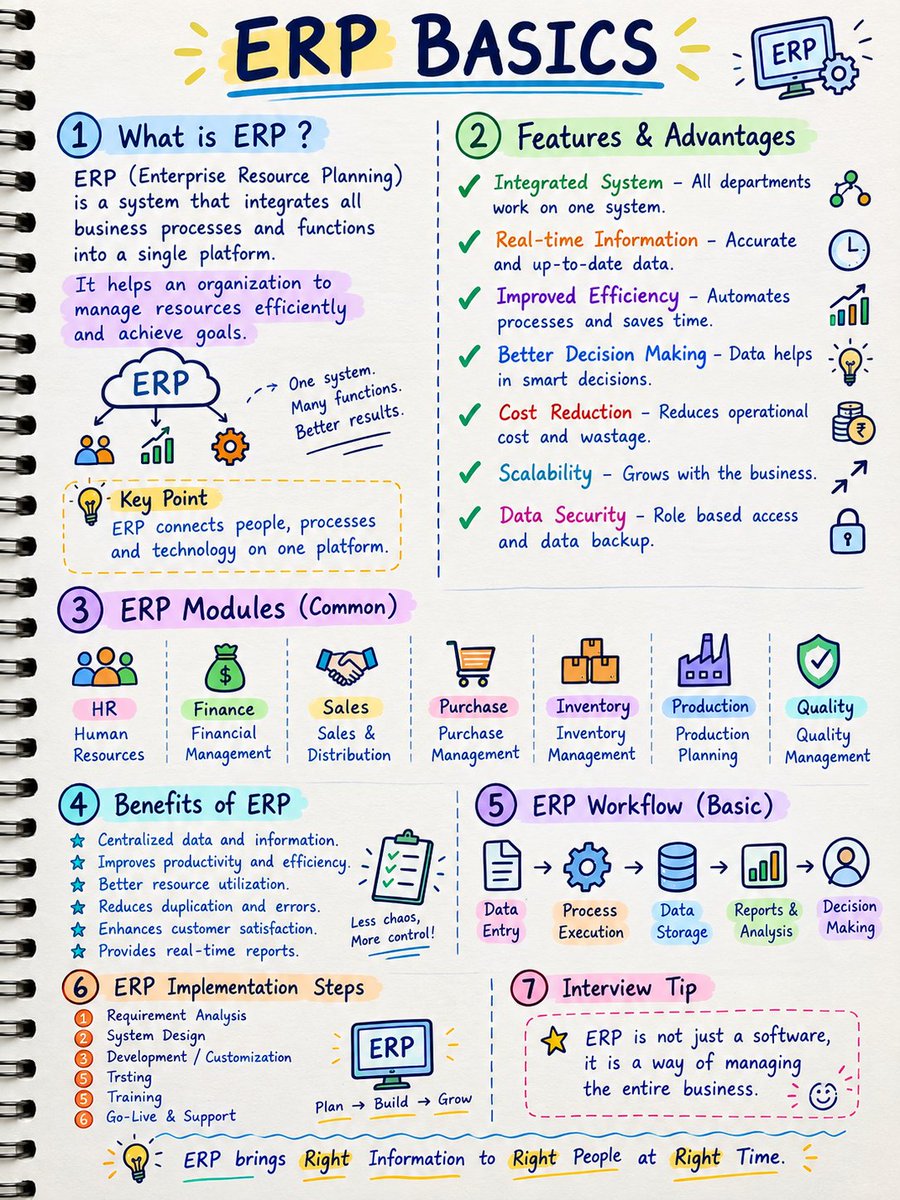 ERP BASICS
ERP
1 What is ERP ?
ERP (Enterprise Resource Planning)
is a system that integrates all
business processes and functions
into a single platform.
It helps an organization to
manage resources efficiently
and achieve goals.
ERP
One system.
Many functions.
Better results.
Key Point
ERP connects people, processes
and technology on one platform.
2 Features & Advantages
✓ Integrated System – All departments
work on one system.
✓ Real-time Information – Accurate
and up-to-date data.
✓ Improved Efficiency – Automates
processes and saves time.
✓ Better Decision Making – Data helps
in smart decisions.
✓ Cost Reduction – Reduces operational
cost and wastage.
₹
✓ Scalability – Grows with the business.
✓ Data Security – Role based access
and data backup.
3 ERP Modules (Common)
HR
Human
Resources
$
Finance
Financial
Management
Sales
Sales &
Distribution
Purchase
Purchase
Management
Inventory
Inventory
Management
Production
Production
Planning
Quality
Quality
Management
4 Benefits of ERP
★ Centralized data and information.
★ Improves productivity and efficiency.
★ Better resource utilization.
★ Reduces duplication and errors.
★ Enhances customer satisfaction.
★ Provides real-time reports.
Less chaos,
More control!
5 ERP Workflow (Basic)
Data
Entry
→ Process
Execution
→ Data
Storage
→ Reports &
Analysis
→ Decision
Making
6 ERP Implementation Steps
1 Requirement Analysis
2 System Design
3 Development / Customization
5 Trsting
5 Training
6 Go-Live & Support
ERP
Plan → Build → Grow
7 Interview Tip
ERP is not just a software,
it is a way of managing
the entire business.
ERP brings Right Information to Right People at Right Time.